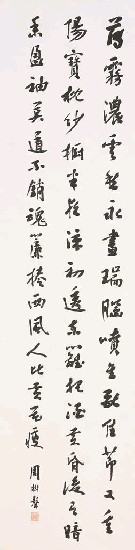 薄霧濃雲愁永晝瑞腦噴金獸佳節又重
陽寶枕紗櫥半夜涼初透東籬把酒黃昏後有暗
香盈袖莫道不銷魂簾捲西風人比黃花瘦